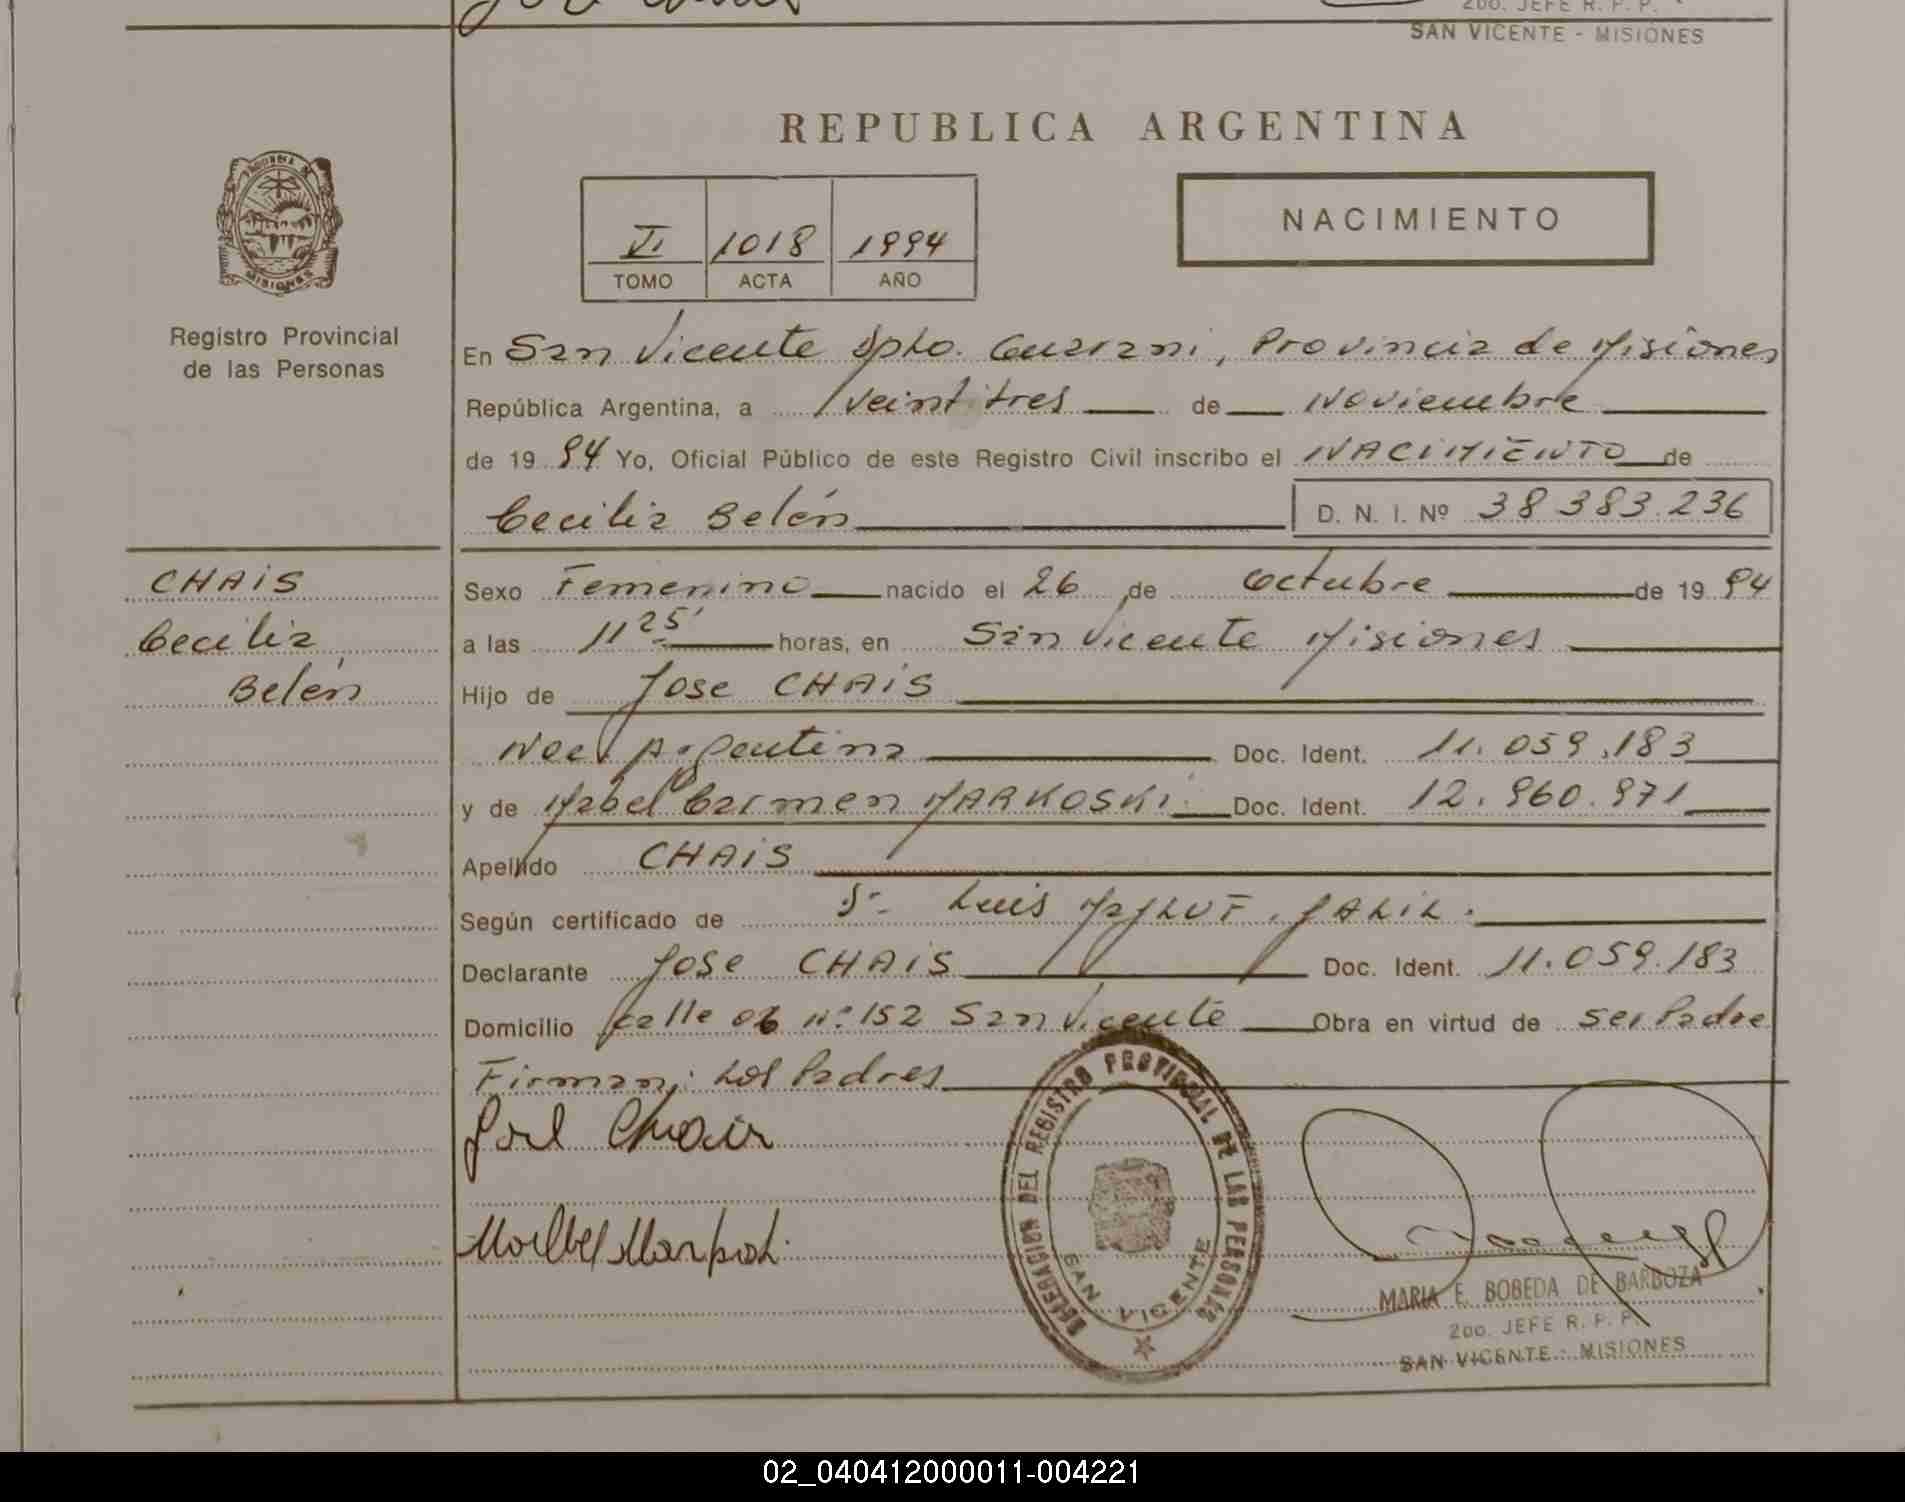 2do. JEFE R. P. P.
SAN VICENTE - MISIONES
REPUBLICA ARGENTINA
MISIONES
Registro Provincial
de las Personas
VI 1018 1994
TOMO ACTA AÑO
NACIMIENTO
En San Vicente Dpto. Guarani, Provincia de Misiones
República Argentina, a veintitres de Noviembre
de 1994 Yo, Oficial Público de este Registro Civil inscribo el NACIMIENTO de
Cecilia Belén D. N. I. Nº 38 383.236
CHAIS
Cecilia
Belén
Sexo Femenino nacido el 26 de Octubre de 1994
a las 11 25' horas, en San Vicente Misiones
Hijo de Jose CHAIS
Nac. Argentina Doc. Ident. 11.059.183
y de Mabel Carmen MARKOSKI Doc. Ident. 12.960.971
Apellido CHAIS
Según certificado de Dr. Luis JALIL.
Declarante Jose CHAIS Doc. Ident. 11.059.183
Domicilio calle 06 nº 152 San Vicente Obra en virtud de ser Padre
Firman: Los Padres
José Chais
DELEGACION DEL REGISTRO PROVINCIAL DE LAS PERSONAS
SAN VICENTE
MARIA E. BOBEDA DE BARBOZA
2do. JEFE R. P. P.
SAN VICENTE - MISIONES
02_040412000011-004221